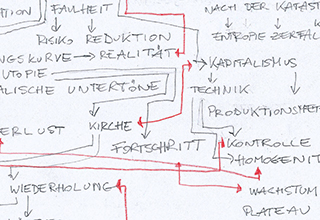 TION
FAULHEIT
NACH DER KATAST
RISIKO REDUKTION
ENTROPIE ZERFAL
NGSKURVE → REALITÄT
UTOPIE
KAPITALISMUS
ALISCHE UNTERTÖNE
TECHNIK
PRODUKTIONS
KIRCHE
ERLUST
FORTSCHRITT
KONTROLLE
HOMOGENIT
WIEDERHOLUNG
WACHSTUM
PLATEAU